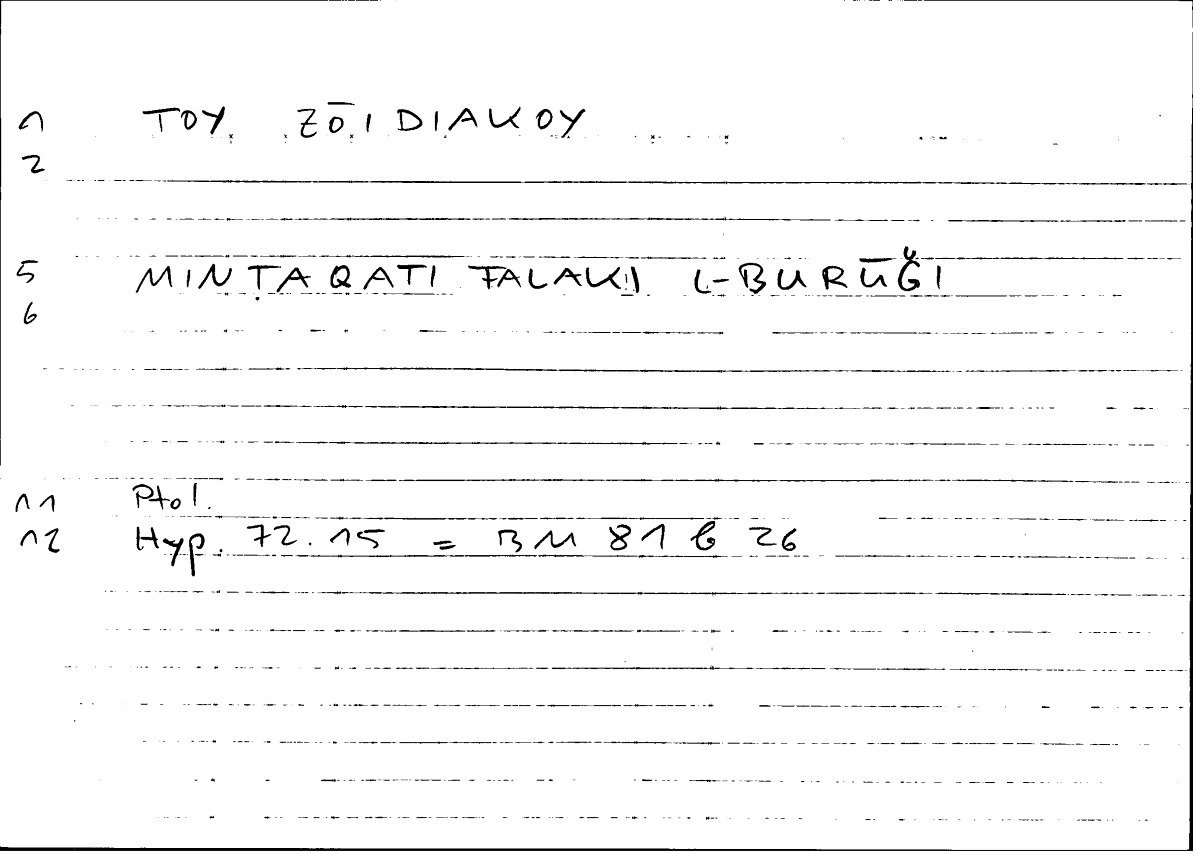 1 TOY ZŌIDIAKOY
2
5 MINṬAQATI FALAKI L-BURŪǦI
6
11 Ptol.
12 Hyp. 72.15 = BM 81 b 26